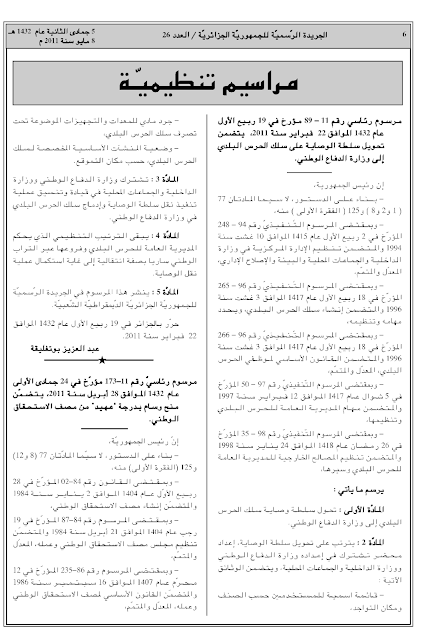 6
الجريدة الرّسميّة للجمهوريّة الجزائريّة / العدد 26
5 جمادى الثانية عام 1432 هـ
8 مايو سنة 2011 م
مراسيم تنظيميّة
مرسوم رئاسي رقم 11 – 89 مؤرخ في 19 ربيع الأول
عام 1432 الموافق 22 فبراير سنة 2011، يتضمن
تحويل سلطة الوصاية على سلك الحرس البلدي
إلى وزارة الدفاع الوطني.
إن رئيس الجمهورية،
– بناء على الدستور، لا سيما المادتان 77
( 1 و2 و8 ) و125 ( الفقرة الأولى ) منه،
– وبمقتضى المرسوم التنفيذي رقم 94 – 248
المؤرخ في 2 ربيع الأول عام 1415 الموافق 10 غشت سنة
1994 والمتضمن تنظيم الإدارة المركزية في وزارة
الداخلية والجماعات المحلية والبيئة والإصلاح الإداري،
المعدل والمتمم،
– وبمقتضى المرسوم التنفيذي رقم 96 – 265
المؤرخ في 18 ربيع الأول عام 1417 الموافق 3 غشت سنة
1996 والمتضمن إنشاء سلك الحرس البلدي، ويحدد
مهامه وتنظيمه،
– وبمقتضى المرسوم التنفيذي رقم 96 – 266
المؤرخ في 18 ربيع الأول عام 1417 الموافق 3 غشت سنة
1996 والمتضمن القانون الأساسي لموظفي الحرس
البلدي، المعدل والمتمم،
– وبمقتضى المرسوم التنفيذي رقم 97 – 50 المؤرخ
في 5 شوال عام 1417 الموافق 12 فبراير سنة 1997
والمتضمن مهام المديرية العامة للحرس البلدي
وتنظيمها،
– وبمقتضى المرسوم التنفيذي رقم 98 – 35 المؤرخ
في 26 رمضان عام 1418 الموافق 24 يناير سنة 1998
والمتضمن تنظيم المصالح الخارجية للمديرية العامة
للحرس البلدي وسيرها،
يرسم ما يأتي :
المادة الأولى : تحول سلطة وصاية سلك الحرس
البلدي إلى وزارة الدفاع الوطني.
المادة 2 : يترتب على تحويل سلطة الوصاية، إعداد
محضر تشترك في إعداده وزارة الدفاع الوطني
ووزارة الداخلية والجماعات المحلية، ويتضمن الوثائق
الآتية :
– قائمة اسمية للمستخدمين حسب الصنف
ومكان التواجد،
– جرد مادي للمعدات والتجهيزات الموضوعة تحت
تصرف سلك الحرس البلدي،
– وضعية المنشآت الأساسية المخصصة لسلك
الحرس البلدي، حسب مكان التموقع.
المادة 3 : تشترك وزارة الدفاع الوطني ووزارة
الداخلية والجماعات المحلية في قيادة وتنسيق عملية
تنفيذ نقل سلطة الوصاية وإدماج سلك الحرس البلدي
في وزارة الدفاع الوطني.
المادة 4 : يبقى الترتيب التنظيمي الذي يحكم
المديرية العامة للحرس البلدي وفروعها عبر التراب
الوطني ساريا بصفة انتقالية إلى غاية استكمال عملية
نقل الوصاية.
المادة 5 : ينشر هذا المرسوم في الجريدة الرسمية
للجمهورية الجزائرية الديمقراطية الشعبية.
حرر بالجزائر في 19 ربيع الأول عام 1432 الموافق
22 فبراير سنة 2011.
عبد العزيز بوتفليقة
مرسوم رئاسي رقم 11–173 مؤرخ في 24 جمادى الأولى
عام 1432 الموافق 28 أبريل سنة 2011، يتضمن
منح وسام بدرجة "عهيد" من مصف الاستحقاق
الوطني.
إن رئيس الجمهورية،
– بناء على الدستور، لا سيما المادتان 77 (8 و12)
و125 (الفقرة الأولى) منه،
– وبمقتضى القانون رقم 84–02 المؤرخ في 28
ربيع الأول عام 1404 الموافق 2 يناير سنة 1984
والمتضمن إنشاء مصف الاستحقاق الوطني،
– وبمقتضى المرسوم رقم 84–87 المؤرخ في 19
رجب عام 1404 الموافق 21 أبريل سنة 1984 والمتضمن
تنظيم مجلس مصف الاستحقاق الوطني وعمله، المعدل
والمتمم،
– وبمقتضى المرسوم رقم 86–235 المؤرخ في 12
محرم عام 1407 الموافق 16 سبتمبر سنة 1986
والمتضمن القانون الأساسي لمصف الاستحقاق الوطني
وعمله، المعدل والمتمم،